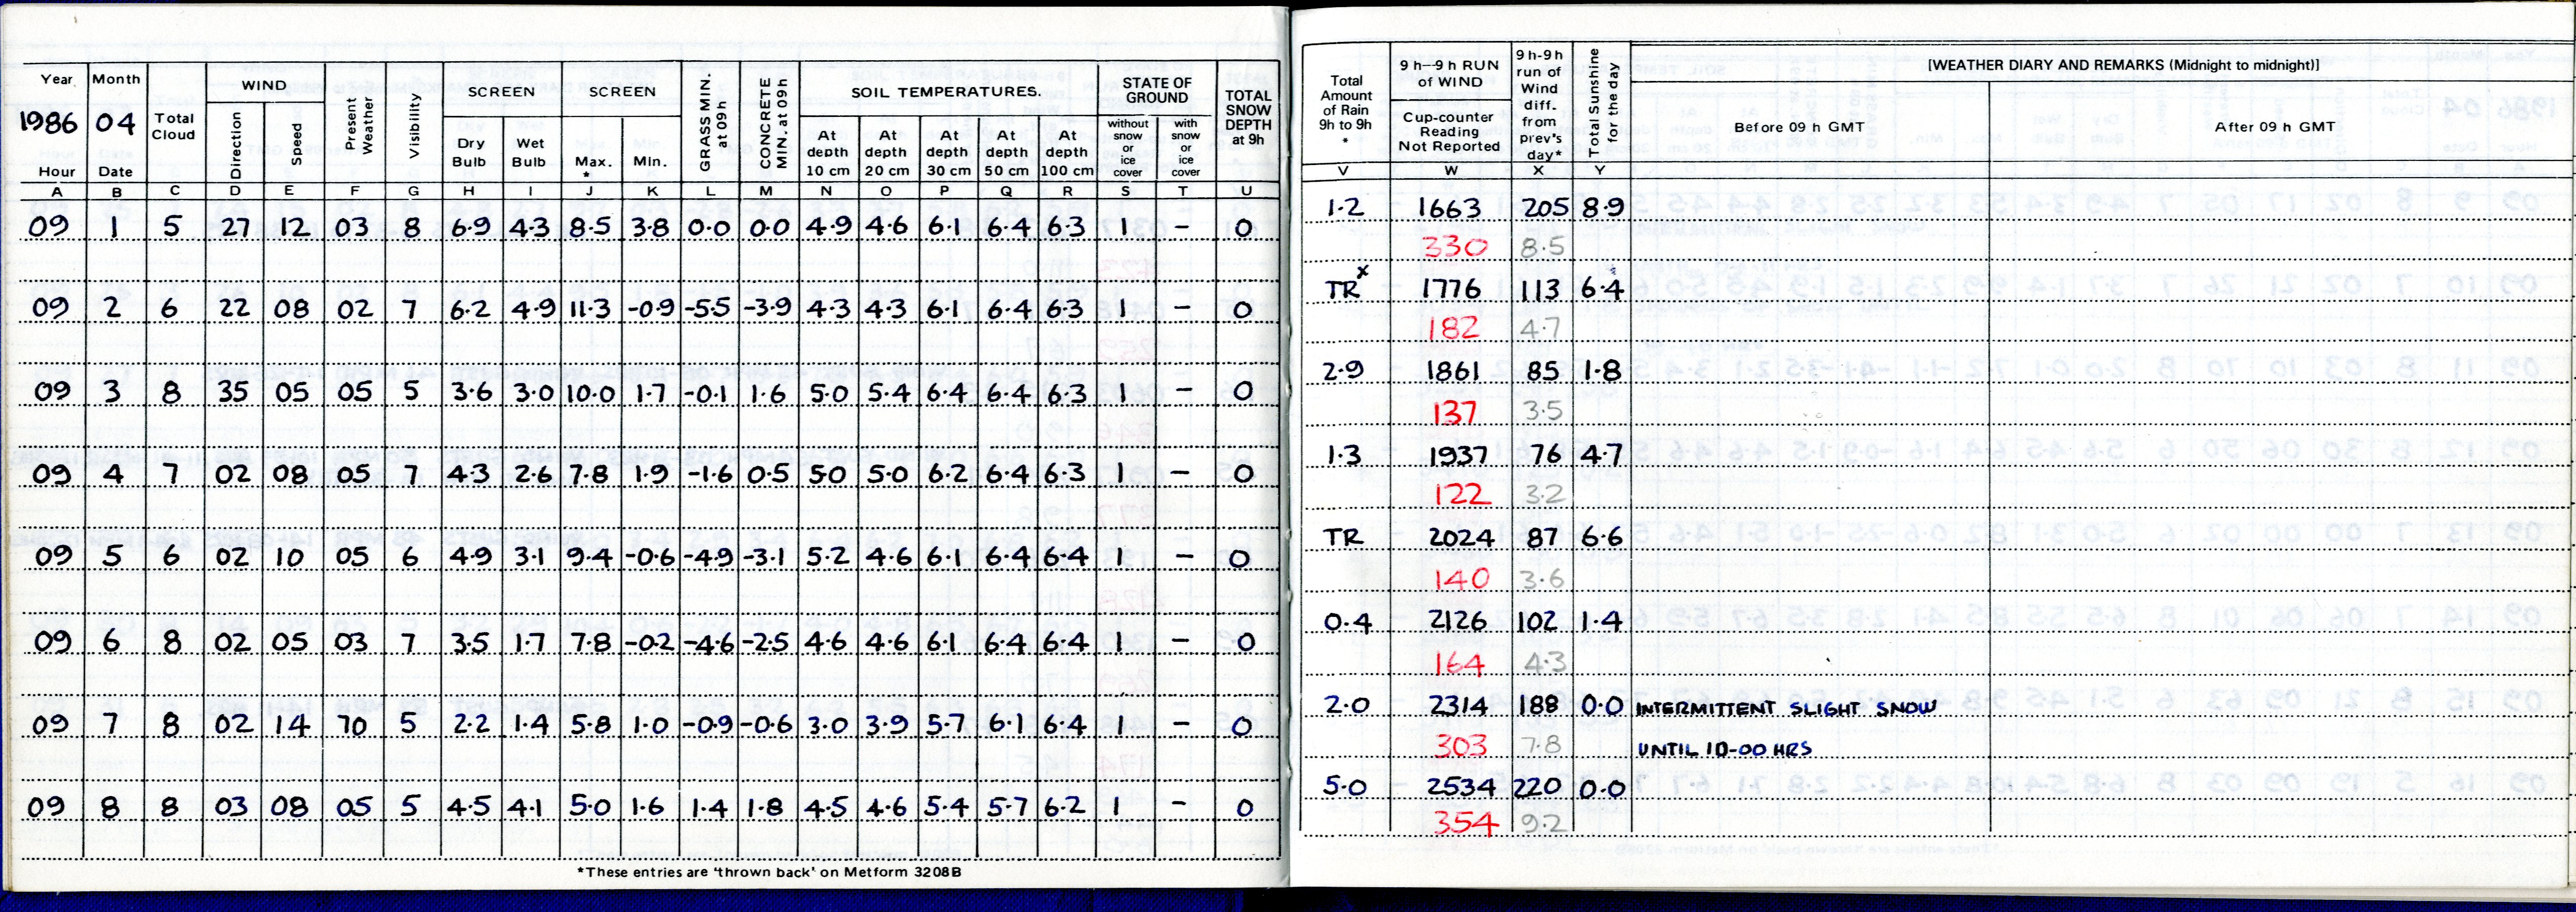 Year Month Total Cloud WIND Present Weather Visibility SCREEN SCREEN GRASS MIN. at 09h CONCRETE MIN. at 09h SOIL TEMPERATURES. STATE OF GROUND TOTAL SNOW DEPTH at 9h
1986 04 Direction Speed Dry Bulb Wet Bulb Max. * Min. At depth 10 cm At depth 20 cm At depth 30 cm At depth 50 cm At depth 100 cm without snow or ice cover with snow or ice cover
Hour Date
A B C D E F G H I J K L M N O P Q R S T U
09 1 5 27 12 03 8 6.9 4.3 8.5 3.8 0.0 0.0 4.9 4.6 6.1 6.4 6.3 1 – 0
09 2 6 22 08 02 7 6.2 4.9 11.3 -0.9 -5.5 -3.9 4.3 4.3 6.1 6.4 6.3 1 – 0
09 3 8 35 05 05 5 3.6 3.0 10.0 1.7 -0.1 1.6 5.0 5.4 6.4 6.4 6.3 1 – 0
09 4 7 02 08 05 7 4.3 2.6 7.8 1.9 -1.6 0.5 5.0 5.0 6.2 6.4 6.3 1 – 0
09 5 6 02 10 05 6 4.9 3.1 9.4 -0.6 -4.9 -3.1 5.2 4.6 6.1 6.4 6.4 1 – 0
09 6 8 02 05 03 7 3.5 1.7 7.8 -0.2 -4.6 -2.5 4.6 4.6 6.1 6.4 6.4 1 – 0
09 7 8 02 14 70 5 2.2 1.4 5.8 1.0 -0.9 -0.6 3.0 3.9 5.7 6.1 6.4 1 – 0
09 8 8 03 08 05 5 4.5 4.1 5.0 1.6 1.4 1.8 4.5 4.6 5.4 5.7 6.2 1 – 0
*These entries are 'thrown back' on Metform 3208B
Total Amount of Rain 9h to 9h * 9 h–9 h RUN of WIND 9 h-9 h run of Wind diff. from prev's day* Total Sunshine for the day [WEATHER DIARY AND REMARKS (Midnight to midnight)]
Cup-counter Reading Not Reported Before 09 h GMT After 09 h GMT
V W X Y
1.2 1663 205 8.9
330 8.5
TR x 1776 113 6.4
182 4.7
2.9 1861 85 1.8
137 3.5
1.3 1937 76 4.7
122 3.2
TR 2024 87 6.6
140 3.6
0.4 2126 102 1.4
164 4.3
2.0 2314 188 0.0 INTERMITTENT SLIGHT SNOW
303 7.8 UNTIL 10-00 HRS
5.0 2534 220 0.0
354 9.2